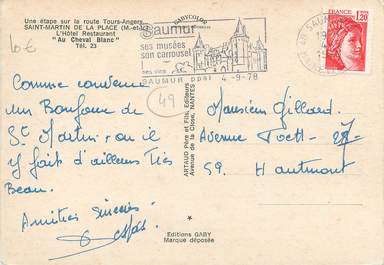 Une étape sur la route Tours-Angers
SAINT-MARTIN DE LA PLACE (M.-et-L.)
L'Hôtel Restaurant
"Au Cheval Blanc"
Tél. 23
10 €
GABYCOLOR
Saumur
ses musées
son carrousel
ses vins
SAUMUR ppal 4-9-78
49 SAUMUR
FRANCE
1,20
49
Comme convenu
un Bonjour de
St Martin, ou il
y fait d'ailleurs Très
Beau.
Amitiés sincères
Monsieur Gillard.
Avenue
59. Hautmont
ARTAUD Père et Fils, Editeurs
Avenue de la Chise, NANTES
Editions GABY
Marque déposée